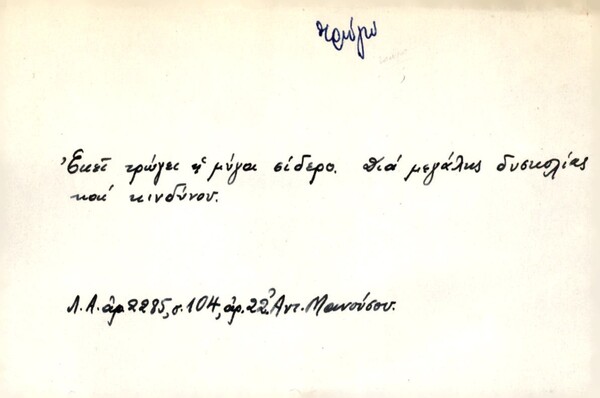 τρώγω
Ἐκεῖ τρώγει ἡ μύγα σίδερο. Διά μεγάλης δυσκολίας
καί κινδύνου.
Λ.Α. ἀρ. 2285, σ. 104, ἀρ. 22, Ἀντ. Μανούσου.